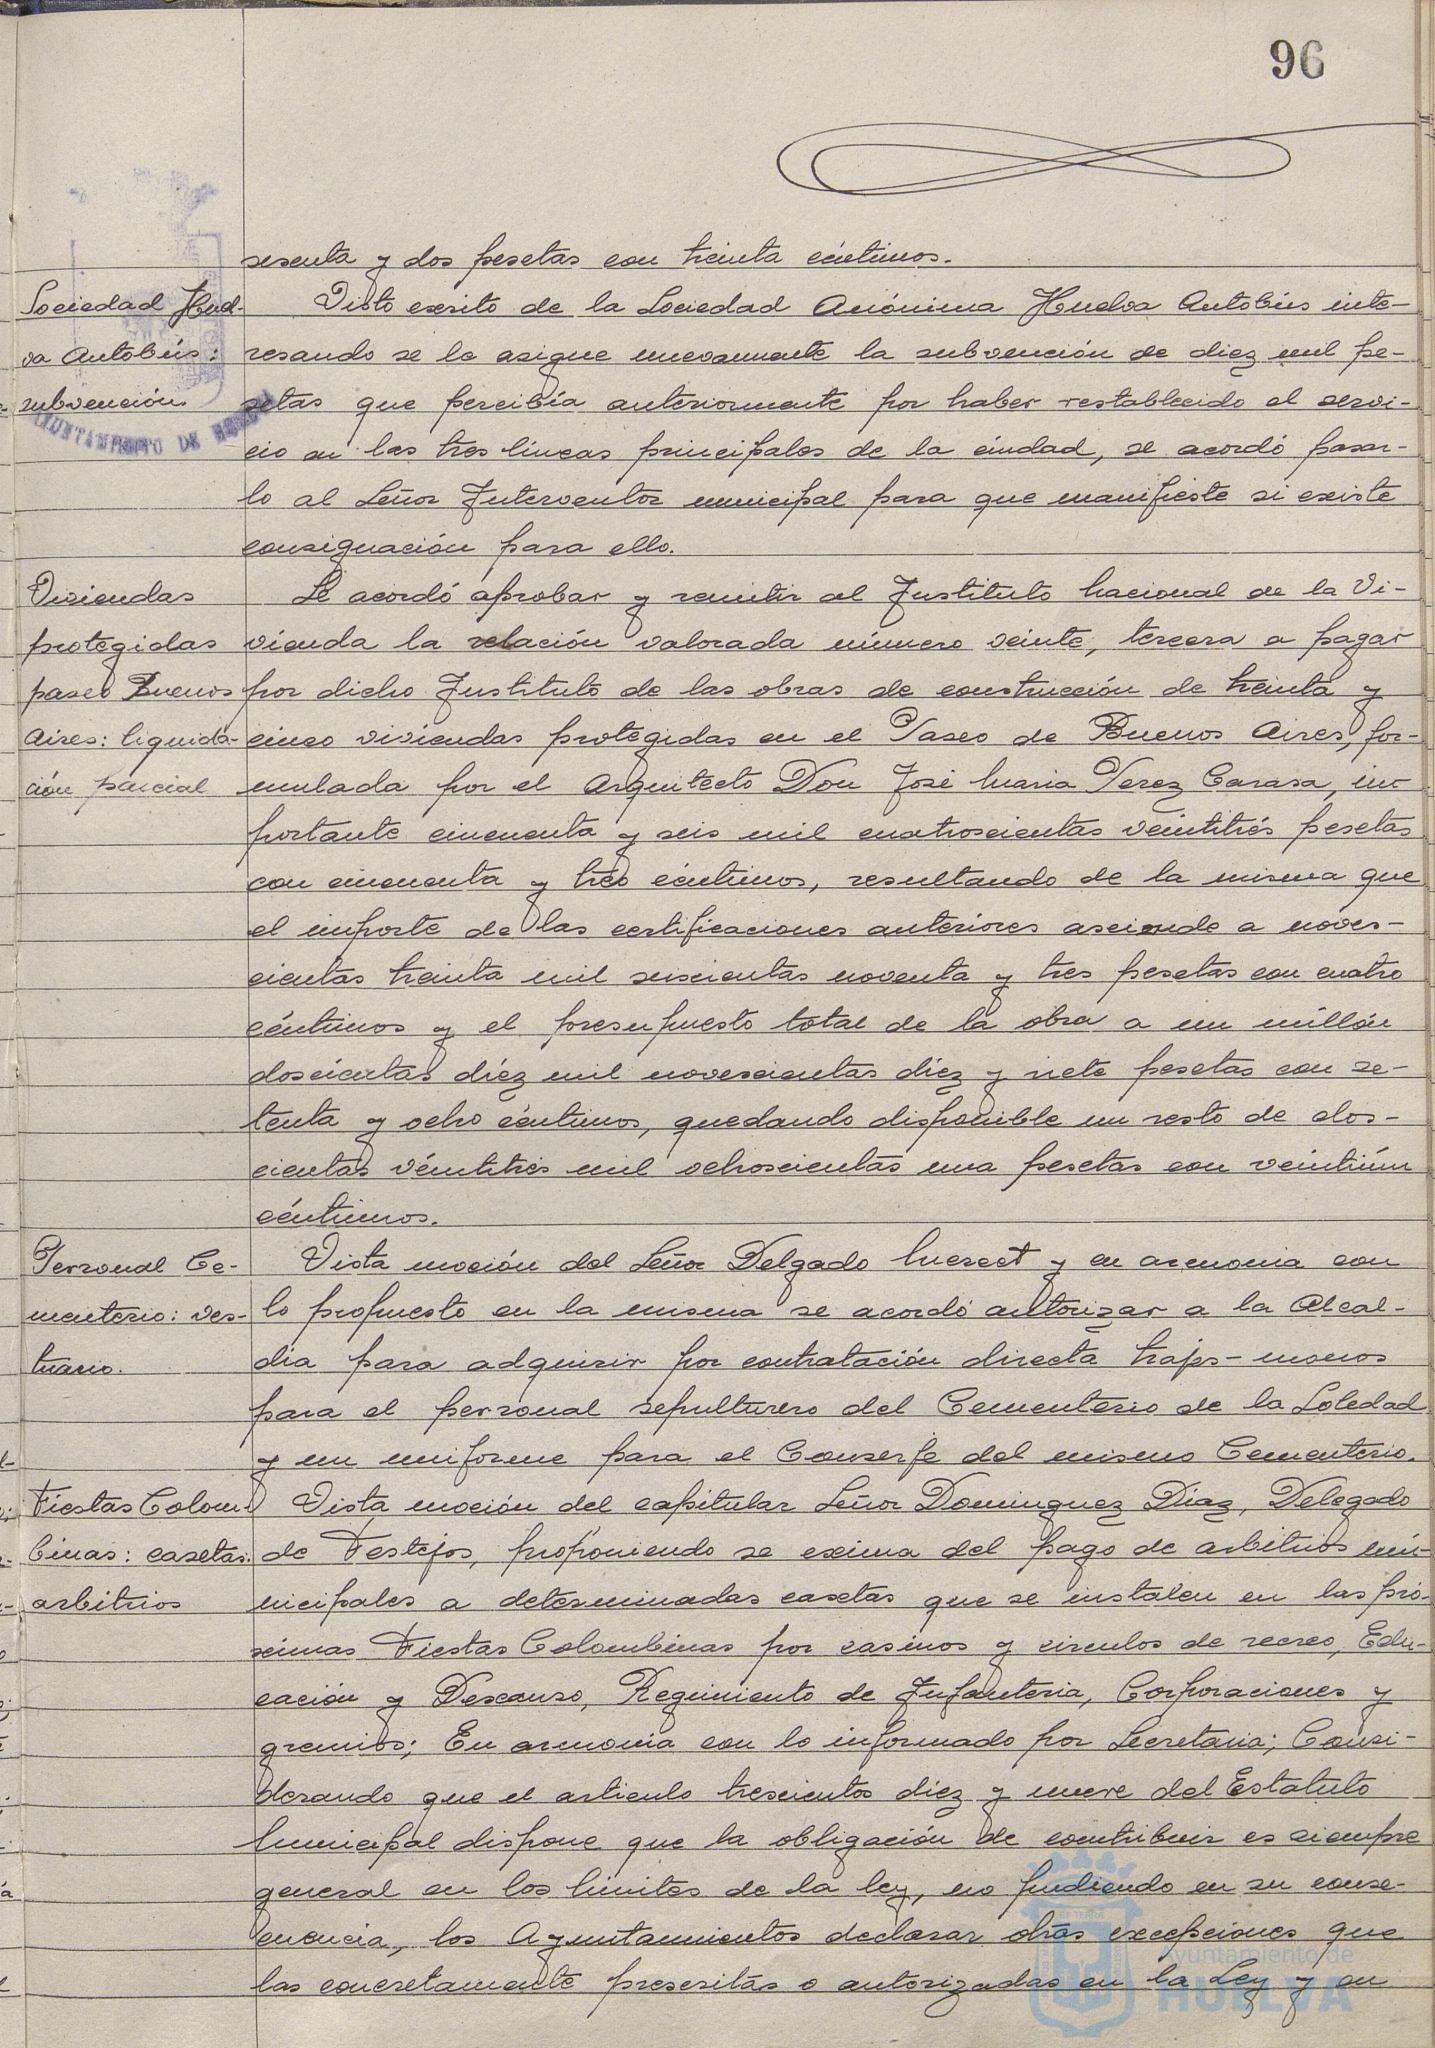 96
sesenta y dos pesetas con treinta céntimos.
Sociedad Huel-
va Autobús:
subvención
AYUNTAMIENTO DE HUELVA
Visto escrito de la Sociedad Anónima Huelva Autobús inte-
resando se le asigne nuevamente la subvención de diez mil pe-
setas que percibía anteriormente por haber restablecido el servi-
cio en las tres líneas principales de la ciudad, se acordó pasar-
lo al Señor Interventor municipal para que manifieste si existe
consignación para ello.
Viviendas
protegidas
paseo Buenos
Aires: liquida-
ción parcial
Se acordó aprobar y remitir al Instituto Nacional de la Vi-
vienda la relación valorada número veinte, tercera a pagar
por dicho Instituto de las obras de construcción de treinta y
cinco viviendas protegidas en el Paseo de Buenos Aires, for-
mulada por el Arquitecto Don José Maria Perez Carasa, im-
portante cincuenta y seis mil cuatroscientas veintitrés pesetas
con cincuenta y tres céntimos, resultando de la misma que
el importe de las certificaciones anteriores asciende a noves-
cientas treinta mil seiscientas noventa y tres pesetas con cuatro
céntimos y el presupuesto total de la obra a un millón
doscientas diez mil novescientas diez y siete pesetas con se-
tenta y ocho céntimos, quedando disponible un resto de dos-
cientas veintitrés mil ochoscientas una pesetas con veintiún
céntimos.
Personal Ce-
menterio: ves-
tuario.
Vista moción del Señor Delgado y en armonia con
lo propuesto en la misma se acordó autorizar a la Alcal-
día para adquirir por contratación directa trajes-monos
para el personal sepulturero del Cementerio de la Soledad
y un uniforme para el Conserje del mismo Cementerio.
Fiestas Colom-
binas: casetas:
arbitrios
Vista moción del capitular Señor Dominguez Diaz, Delegado
de Festejos, proponiendo se exima del pago de arbitrios mu-
nicipales a determinadas casetas que se instalen en las pró-
ximas Fiestas Colombinas por casinos y circulos de recreo, Edu-
cación y Descanso, Regimiento de Infanteria, Corporaciones y
gremios; En armonia con lo informado por Secretaria; Consi-
derando que el articulo trescientos diez y nueve del Estatuto
Municipal dispone que la obligación de contribuir es siempre
general en los limites de la ley, no pudiendo en su conse-
cuencia, los Ayuntamientos declarar otras excepciones que
las concretamente prescritas o autorizadas en la Ley y en
Ayuntamiento de
HUELVA